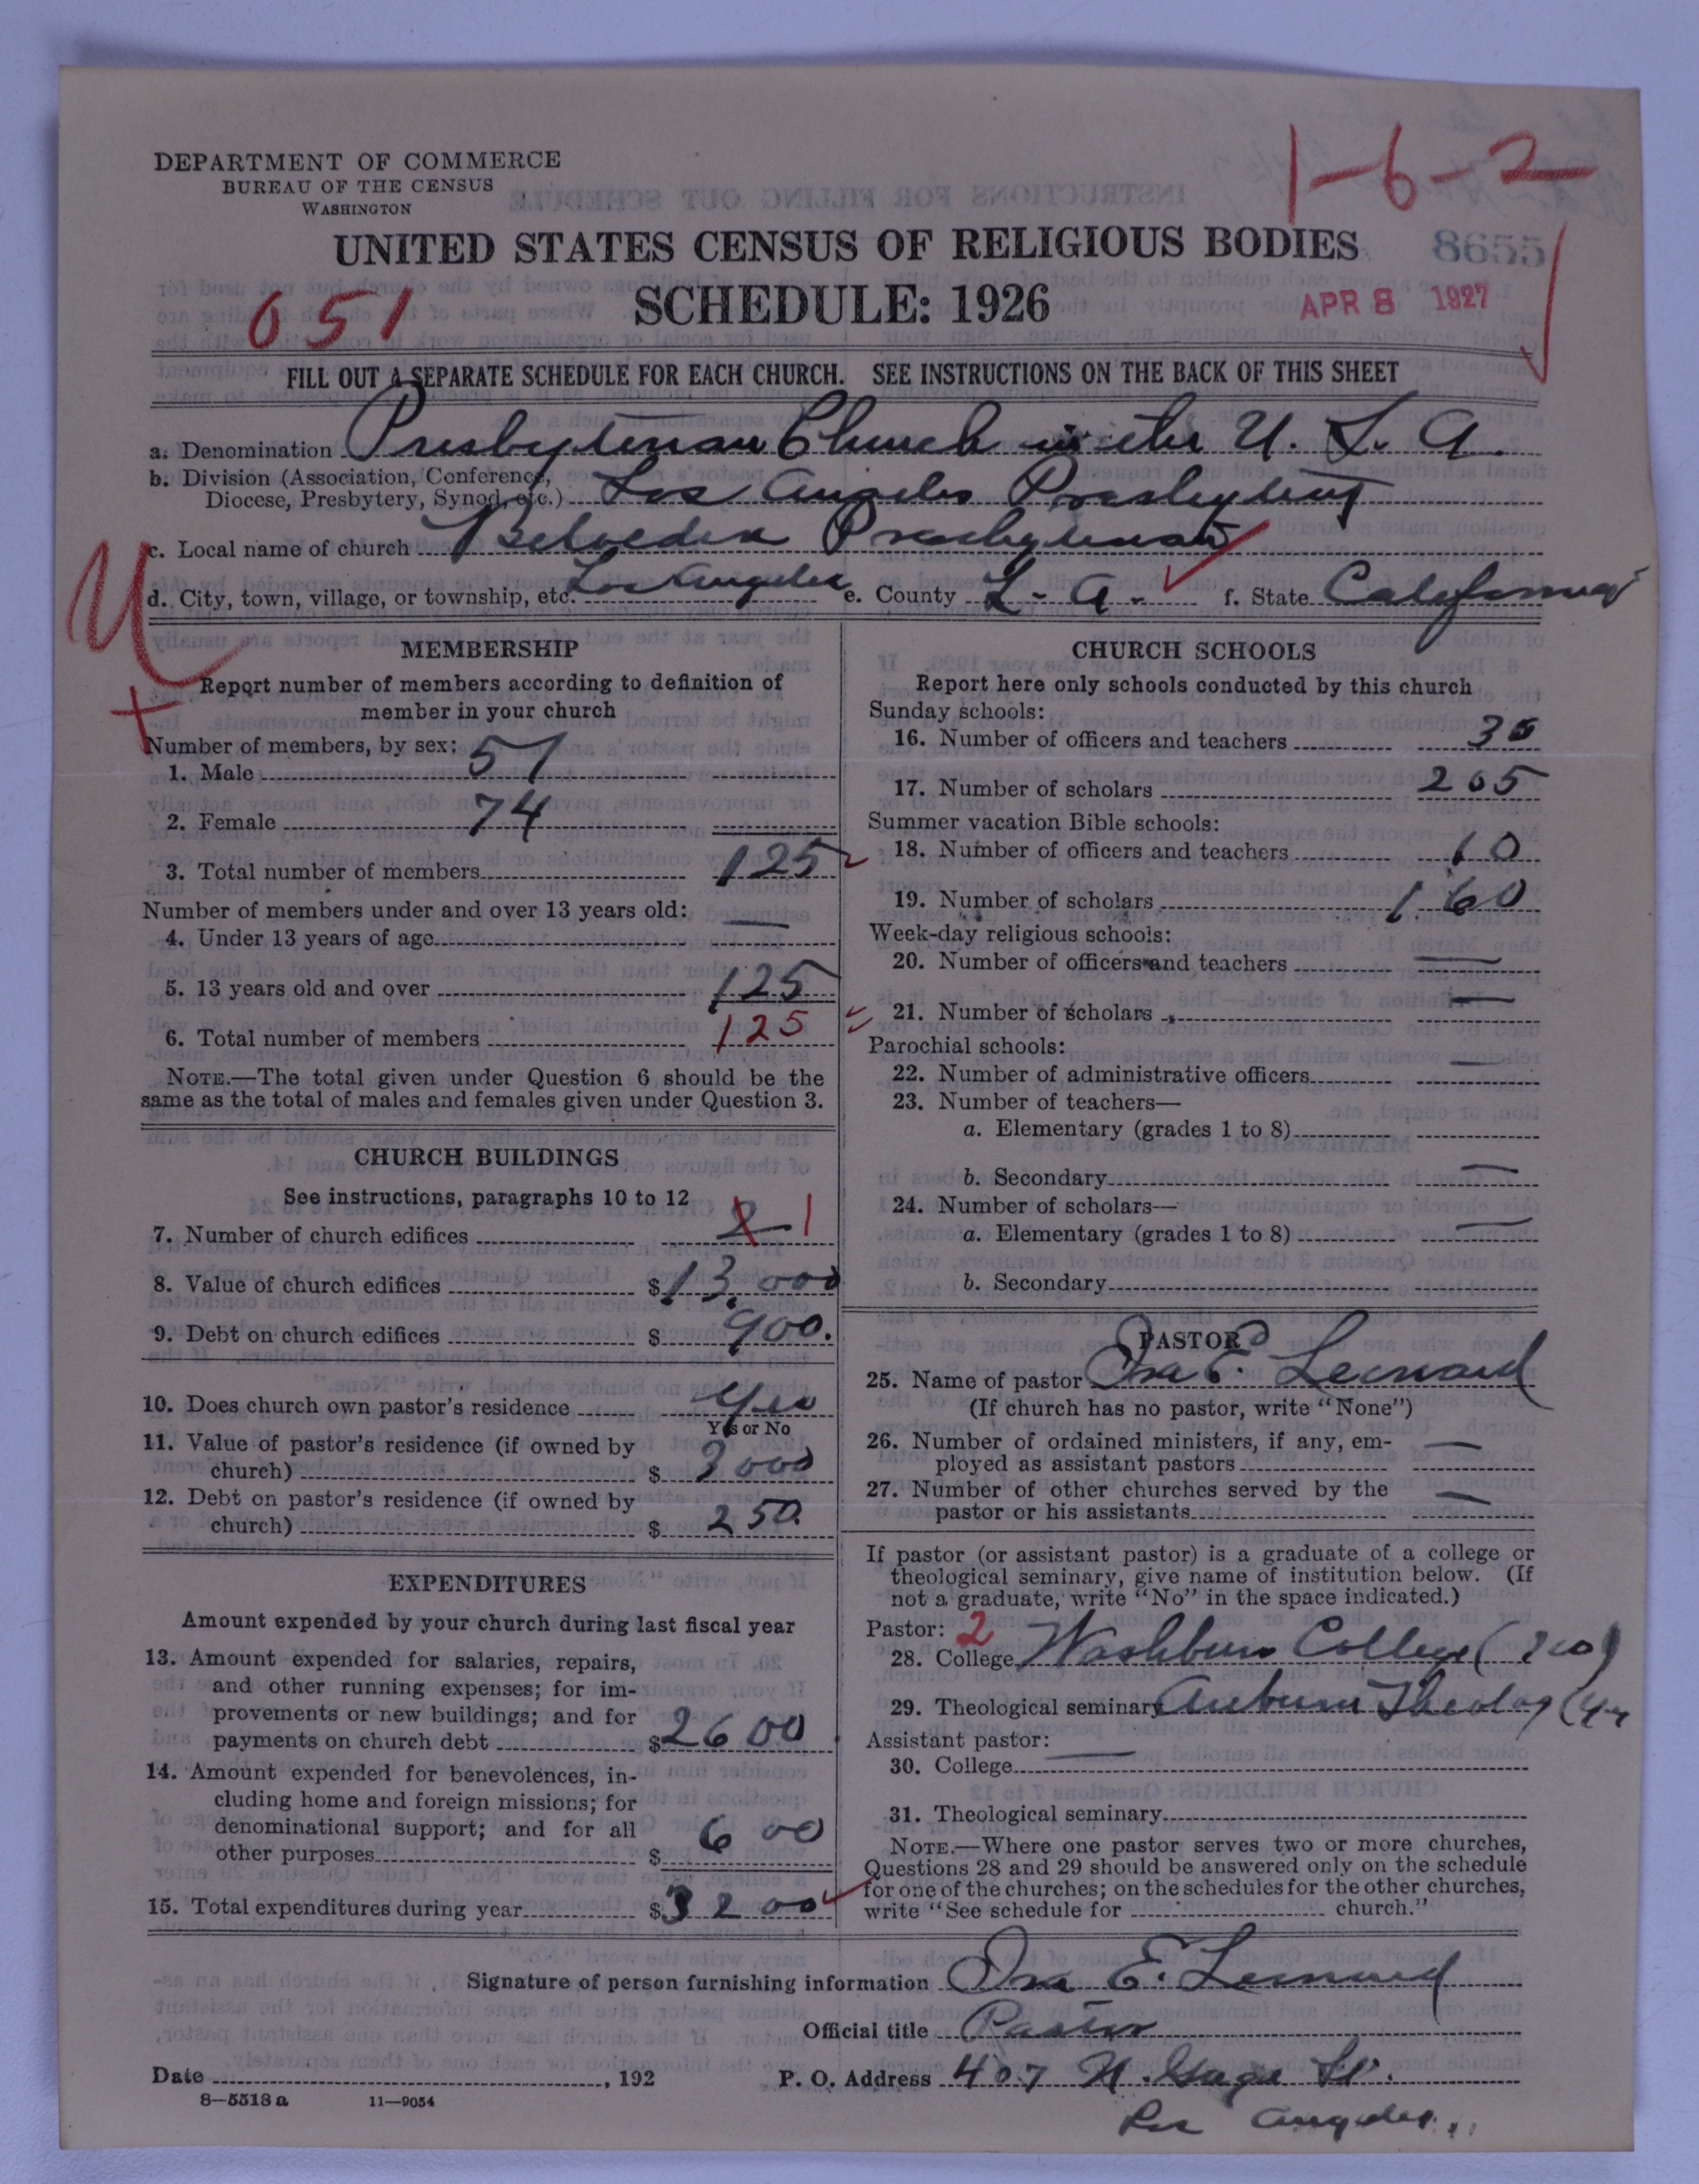 DEPARTMENT OF COMMERCE
BUREAU OF THE CENSUS
WASHINGTON
1-6-2
UNITED STATES CENSUS OF RELIGIOUS BODIES
8655
051
SCHEDULE: 1926
APR 8 1927
FILL OUT A SEPARATE SCHEDULE FOR EACH CHURCH. SEE INSTRUCTIONS ON THE BACK OF THIS SHEET
a. Denomination Presbyterian Church in the U. S. A.
b. Division (Association, Conference,
Diocese, Presbytery, Synod, etc.) Los Angeles Presbytery
c. Local name of church Belvedere Presbyterian
d. City, town, village, or township, etc. Los Angeles e. County L. A. f. State California
MEMBERSHIP
Report number of members according to definition of
member in your church
Number of members, by sex:
1. Male 51
2. Female 74
3. Total number of members 125
Number of members under and over 13 years old:
4. Under 13 years of age —
5. 13 years old and over 125
6. Total number of members 125
NOTE.—The total given under Question 6 should be the
same as the total of males and females given under Question 3.
CHURCH BUILDINGS
See instructions, paragraphs 10 to 12
7. Number of church edifices 2 1
8. Value of church edifices $13,000
9. Debt on church edifices $ 900.
10. Does church own pastor's residence Yes
Yes or No
11. Value of pastor's residence (if owned by
church) $ 3000
12. Debt on pastor's residence (if owned by
church) $ 250.
EXPENDITURES
Amount expended by your church during last fiscal year
13. Amount expended for salaries, repairs,
and other running expenses; for im-
provements or new buildings; and for
payments on church debt $2600
14. Amount expended for benevolences, in-
cluding home and foreign missions; for
denominational support; and for all
other purposes $ 600
15. Total expenditures during year $3200
CHURCH SCHOOLS
Report here only schools conducted by this church
Sunday schools:
16. Number of officers and teachers 30
17. Number of scholars 205
Summer vacation Bible schools:
18. Number of officers and teachers 10
19. Number of scholars 160
Week-day religious schools:
20. Number of officers and teachers —
21. Number of scholars —
Parochial schools:
22. Number of administrative officers —
23. Number of teachers—
a. Elementary (grades 1 to 8)
b. Secondary —
24. Number of scholars—
a. Elementary (grades 1 to 8) —
b. Secondary
PASTOR
25. Name of pastor Ira E. Leonard
(If church has no pastor, write "None")
26. Number of ordained ministers, if any, em-
ployed as assistant pastors —
27. Number of other churches served by the
pastor or his assistants —
If pastor (or assistant pastor) is a graduate of a college or
theological seminary, give name of institution below. (If
not a graduate, write "No" in the space indicated.)
Pastor: 2
28. College Washburn College
29. Theological seminary Auburn Theolog
Assistant pastor: —
30. College
31. Theological seminary
NOTE.—Where one pastor serves two or more churches,
Questions 28 and 29 should be answered only on the schedule
for one of the churches; on the schedules for the other churches,
write "See schedule for church."
Signature of person furnishing information Ira E. Leonard
Official title Pastor
Date , 192 P. O. Address 407 N. Gage St.
Los Angeles.
8—5518 a 11—9054